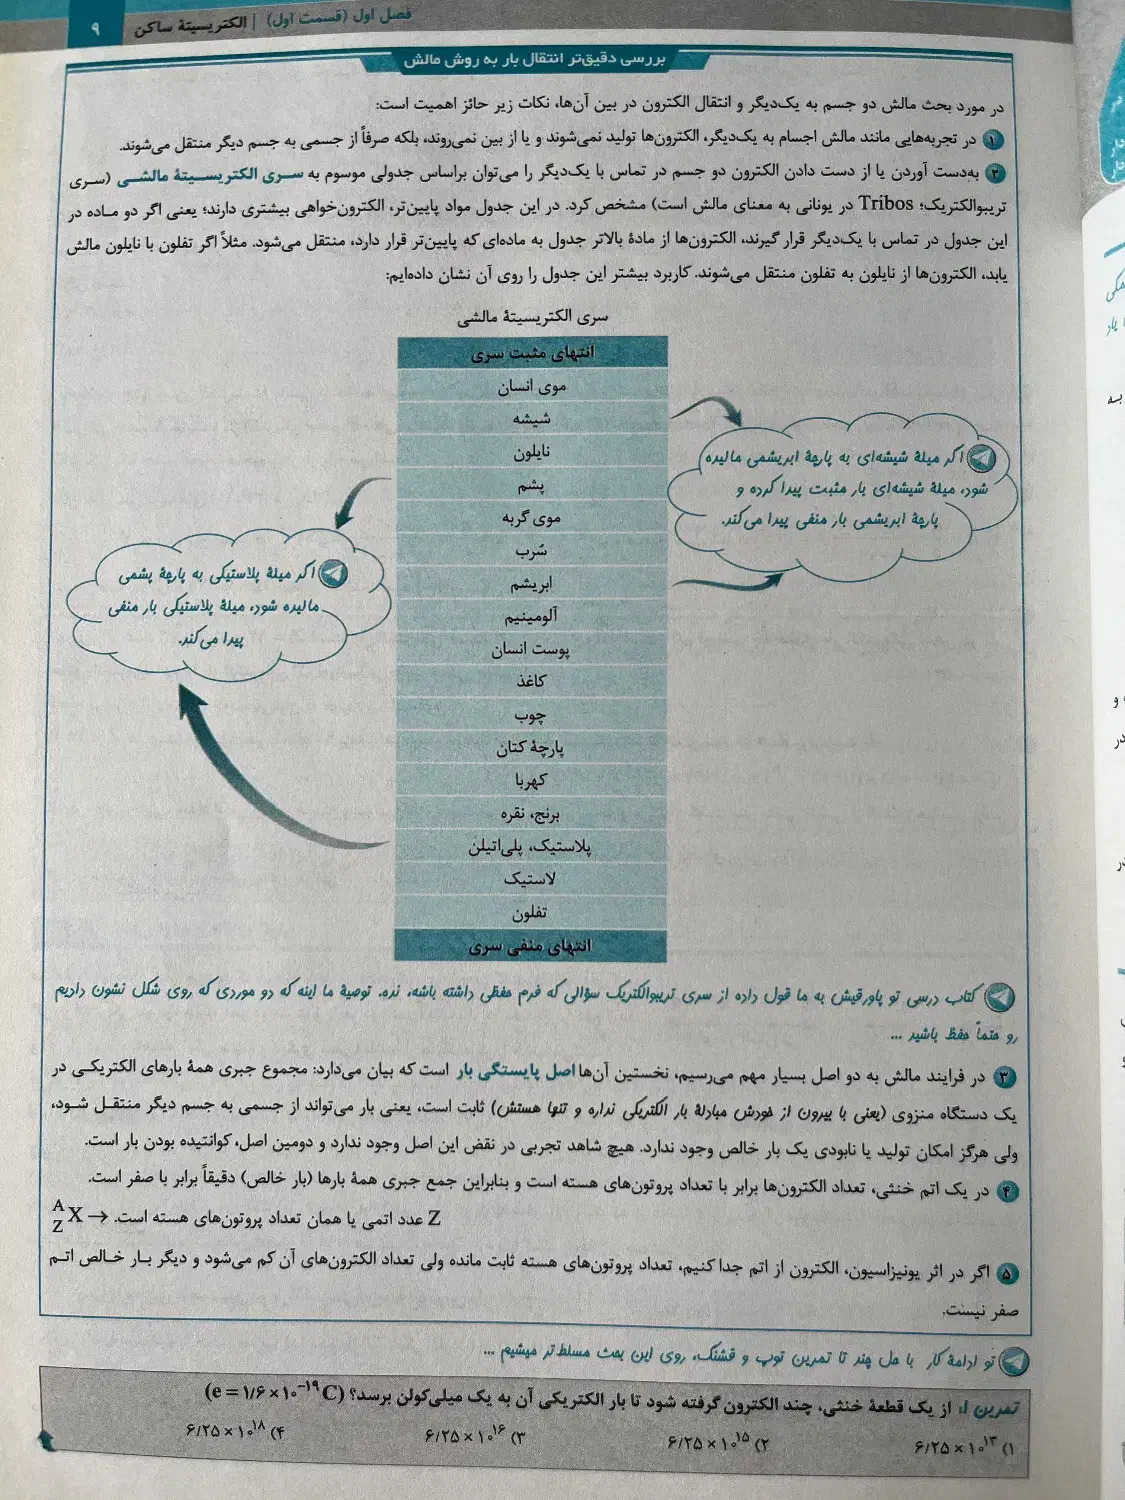 فصل اول (قسمت اول) | الکتریسیتهٔ ساکن ۹
بررسی دقیق‌تر انتقال بار به روش مالش
در مورد بحث مالش دو جسم به یک‌دیگر و انتقال الکترون در بین آن‌ها، نکات زیر حائز اهمیت است:
۱ در تجربه‌هایی مانند مالش اجسام به یک‌دیگر، الکترون‌ها تولید نمی‌شوند و یا از بین نمی‌روند، بلکه صرفاً از جسمی به جسم دیگر منتقل می‌شوند.
۲ به‌دست آوردن یا از دست دادن الکترون دو جسم در تماس با یک‌دیگر را می‌توان براساس جدولی موسوم به سری الکتریسیتهٔ مالشی (سری
تریبوالکتریک؛ Tribos در یونانی به معنای مالش است) مشخص کرد. در این جدول مواد پایین‌تر، الکترون‌خواهی بیشتری دارند؛ یعنی اگر دو ماده در
این جدول در تماس با یک‌دیگر قرار گیرند، الکترون‌ها از مادهٔ بالاتر جدول به ماده‌ای که پایین‌تر قرار دارد، منتقل می‌شود. مثلاً اگر تفلون با نایلون مالش
یابد، الکترون‌ها از نایلون به تفلون منتقل می‌شوند. کاربرد بیشتر این جدول را روی آن نشان داده‌ایم:
سری الکتریسیتهٔ مالشی
انتهای مثبت سری
موی انسان
شیشه
نایلون
پشم
موی گربه
سُرب
ابریشم
آلومینیم
پوست انسان
کاغذ
چوب
پارچهٔ کتان
کهربا
برنج، نقره
پلاستیک، پلی‌اتیلن
لاستیک
تفلون
انتهای منفی سری
اگر میلهٔ شیشه‌ای به پارچهٔ ابریشمی مالیده
شود، میلهٔ شیشه‌ای بار مثبت پیدا کرده و
پارچهٔ ابریشمی بار منفی پیدا می‌کند.
اگر میلهٔ پلاستیکی به پارچهٔ پشمی
مالیده شود، میلهٔ پلاستیکی بار منفی
پیدا می‌کند.
کتاب درسی تو پاورقیش به ما قول داده از سری تریبوالکتریک سؤالی که فرم حفظی داشته باشه، نده. توصیهٔ ما اینه که دو موردی که روی شکل نشون دادیم
رو حتماً حفظ باشید ...
۳ در فرایند مالش به دو اصل بسیار مهم می‌رسیم، نخستین آن‌ها اصل پایستگی بار است که بیان می‌دارد: مجموع جبری همهٔ بارهای الکتریکی در
یک دستگاه منزوی (یعنی با بیرون از خودش مبادلهٔ بار الکتریکی نداره و تنها هستش) ثابت است، یعنی بار می‌تواند از جسمی به جسم دیگر منتقل شود،
ولی هرگز امکان تولید یا نابودی یک بار خالص وجود ندارد. هیچ شاهد تجربی در نقض این اصل وجود ندارد و دومین اصل، کوانتیده بودن بار است.
۴ در یک اتم خنثی، تعداد الکترون‌ها برابر با تعداد پروتون‌های هسته است و بنابراین جمع جبری همهٔ بارها (بار خالص) دقیقاً برابر با صفر است.
Z عدد اتمی یا همان تعداد پروتون‌های هسته است. → ᴬ_Z X
۵ اگر در اثر یونیزاسیون، الکترون از اتم جدا کنیم، تعداد پروتون‌های هسته ثابت مانده ولی تعداد الکترون‌های آن کم می‌شود و دیگر بار خالص اتم
صفر نیست.
تو ادامهٔ کار با حل چند تا تمرین توپ و قشنگ، روی این بحث مسلط‌تر میشیم ...
تمرین ۱: از یک قطعهٔ خنثی، چند الکترون گرفته شود تا بار الکتریکی آن به یک میلی‌کولن برسد؟ (e = ۱/۶ × ۱۰⁻¹⁹ C)
۱) ۶/۲۵ × ۱۰¹³ ۲) ۶/۲۵ × ۱۰¹⁵ ۳) ۶/۲۵ × ۱۰¹⁶ ۴) ۶/۲۵ × ۱۰¹⁸